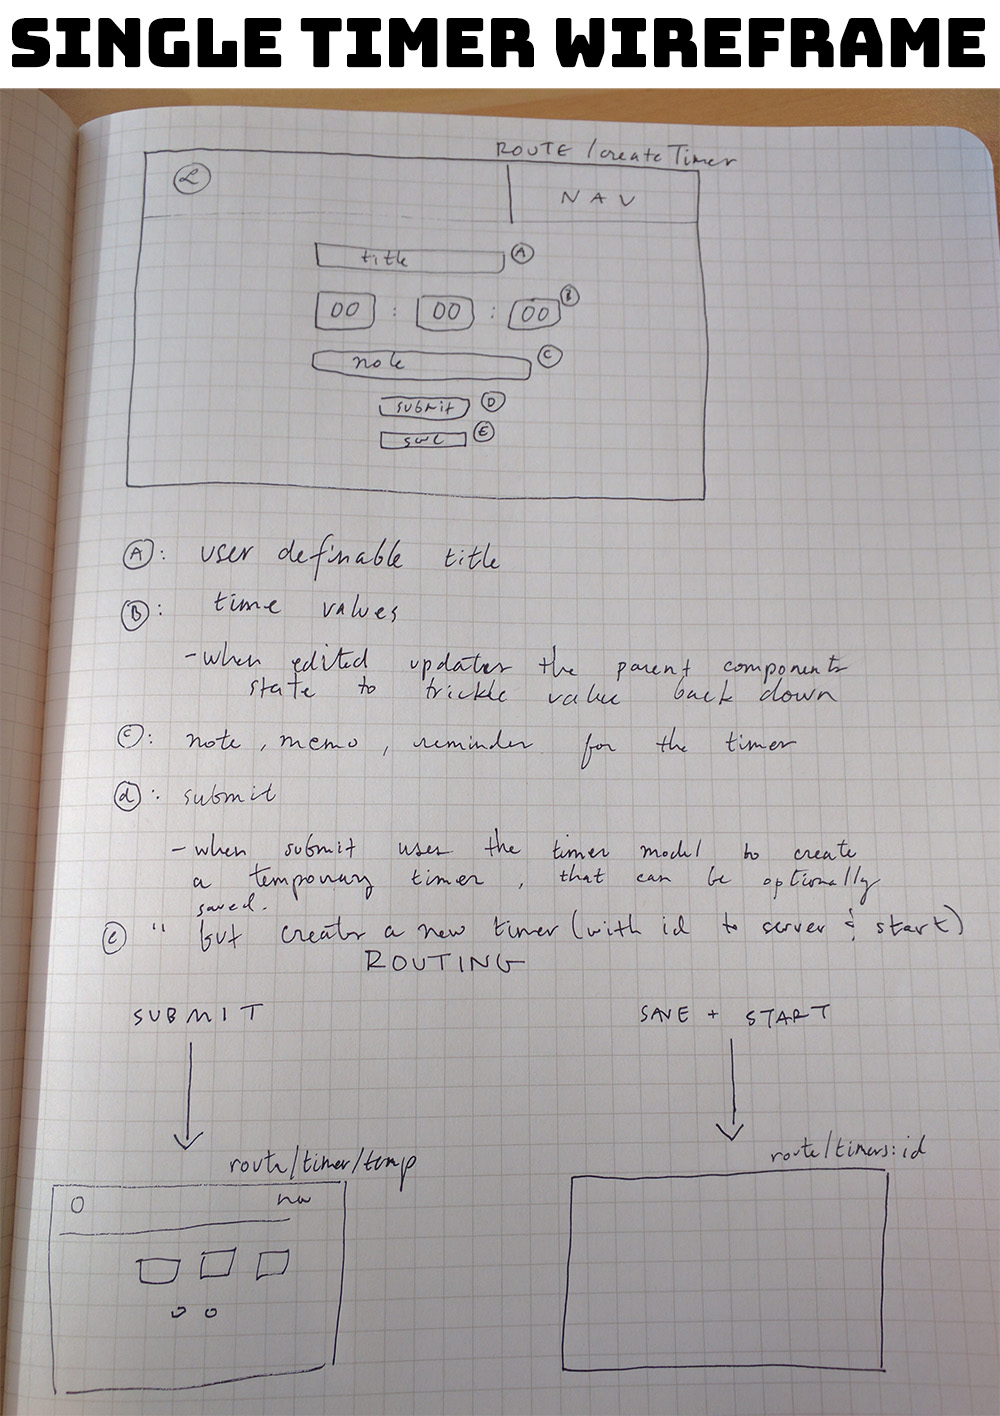 SINGLE TIMER WIREFRAME
ROUTE /createTimer
L
NAV
title A
00 : 00 : 00 B
note C
submit D
save E
A: user definable title
B: time values
- when edited updates the parent components
state to trickle value back down
C: note, memo, reminder for the timer
d: submit
- when submit uses the timer model to create
a temporary timer, that can be optionally
saved.
e " but creates a new timer (with id to server & start)
ROUTING
SUBMIT
SAVE + START
route/timer/temp
route/timers:id
nav